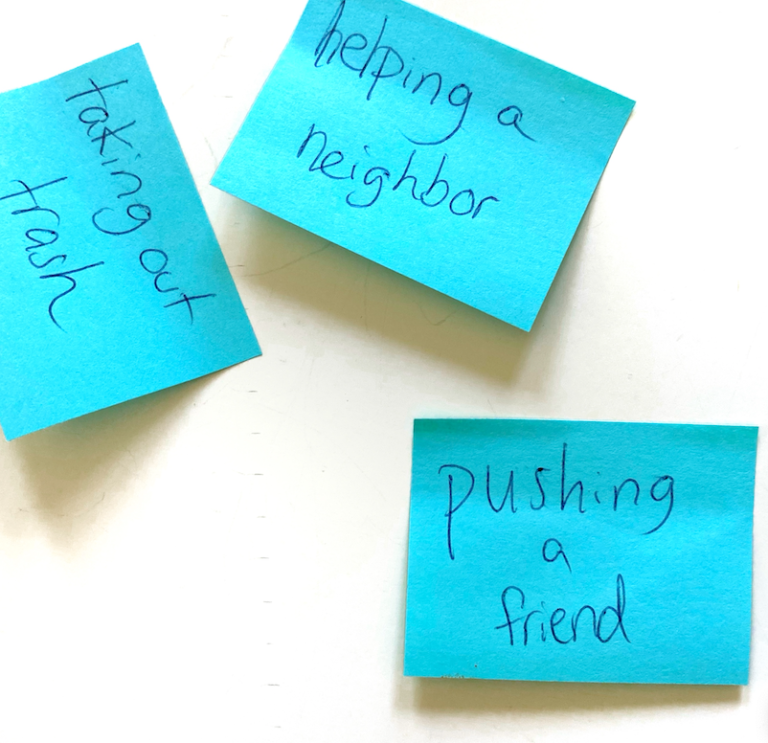 taking out
trash
helping a
neighbor
pushing
a
friend